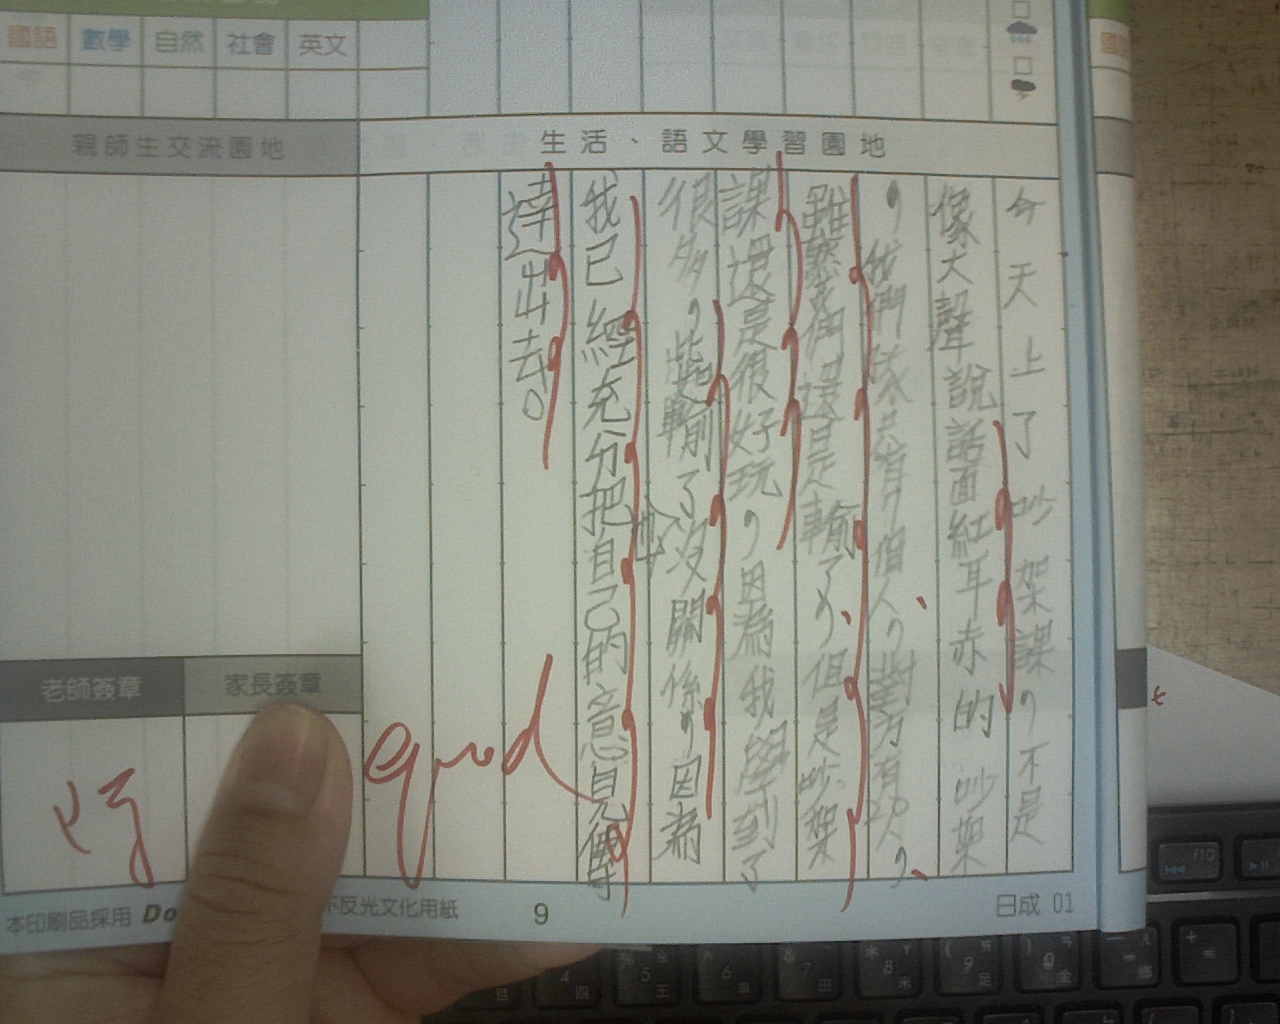 國語 數學 自然 社會 英文
生活、語文學習園地
今天上了吵架課，不是
像大聲說話面紅耳赤的吵架
，我們隊共有17個人，對方有20人，
雖然我們還是輸了，但是吵架
課還是很好玩，因為我學到了
很多，就輸了也沒關係，因為
我已經充分把自己的意見傳
達出去。
good
親師生交流園地
老師簽章 家長簽章
本印刷品採用 Do
不反光文化用紙
9
日成 01